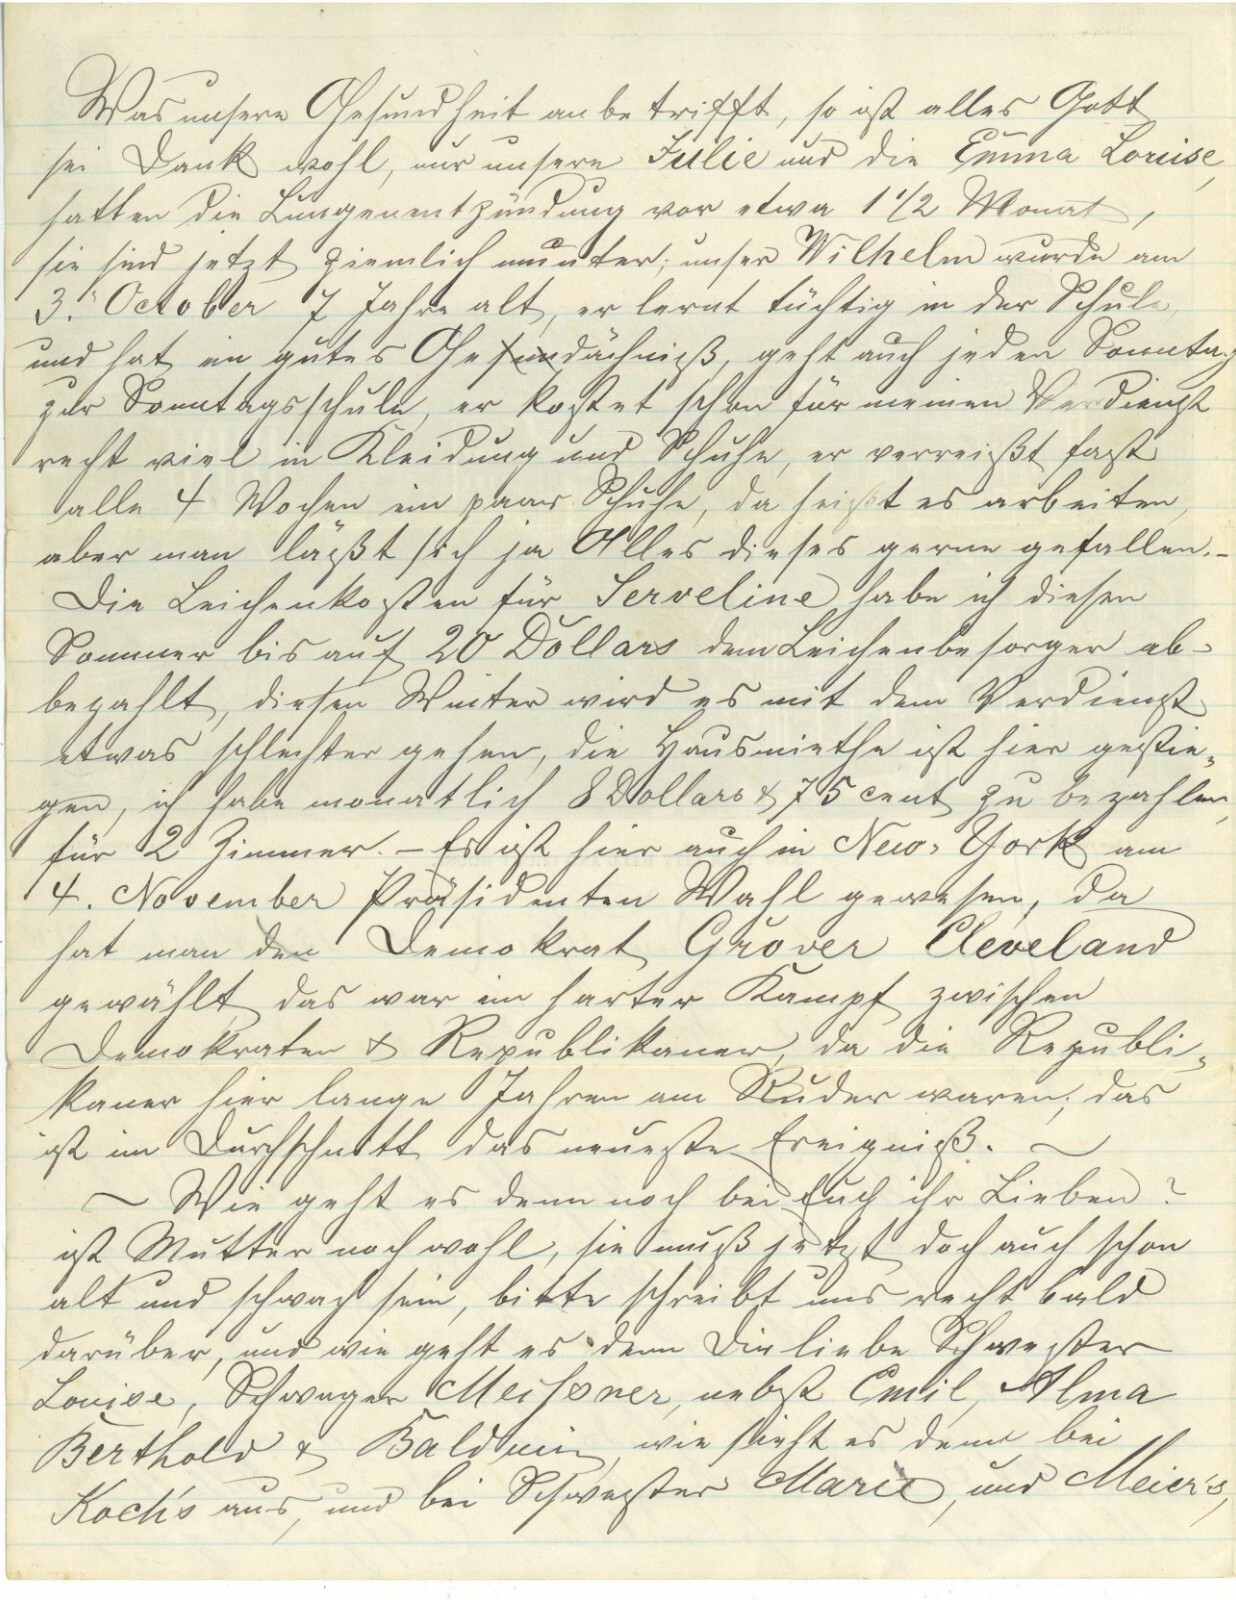 Was unsere Gesundheit anbetrifft, so ist alles Gott
sei Dank wohl, nur unsere Julie und die Emma Louise,
hatten die Lungenentzündung vor etwa 1 1/2 Monat,
sie sind jetzt ziemlich munter; unser Wilhelm wurde am
3. October 7 Jahre alt, er lernt tüchtig in der Schule,
und hat ein gutes Gesundächniß, geht auch jeden Sonntag
zur Sonntagsschule, er kostet schon für meinen Verdienst
recht viel in Kleidung und Schuhe, er verreißt fast
alle 4 Wochen ein paar Schuhe, da heißt es arbeiten,
aber man läßt sich ja Alles dieses gerne gefallen. –
Die Leichenkosten für Serveline habe ich diesen
Sommer bis auf 20 Dollars dem Leichenbesorger ab-
bezahlt, diesen Winter wird es mit dem Verdienst
etwas schlechter gehen, die Hausmiethe ist hier gestie-
gen, ich habe monatlich 8 Dollars & 75 cent zu bezahlen,
für 2 Zimmer. – Es ist hier auch in New-York am
4. November Präsidenten Wahl gewesen, da
hat man den Demokrat Grover Cleveland
gewählt, das war ein harter Kampf zwischen
Demokraten & Republikaner, da die Republi-
kaner hier lange Jahren am Ruder waren; das
ist im Durchschnitt das neueste Ereigniß. ~
~ Wie geht es denn noch bei Euch ihr Lieben?
ist Mutter noch wohl, sie muß jetzt doch auch schon
alt und schwach sein, bitte schreibt uns recht bald
darüber, und wie geht es denn Dir liebe Schwester
Louise, Schwager Meißner, nebst Emil, Alma
Berthold & Balduin, wie sieht es denn bei
Koch's aus, und bei Schwester Marie, und Meier's,